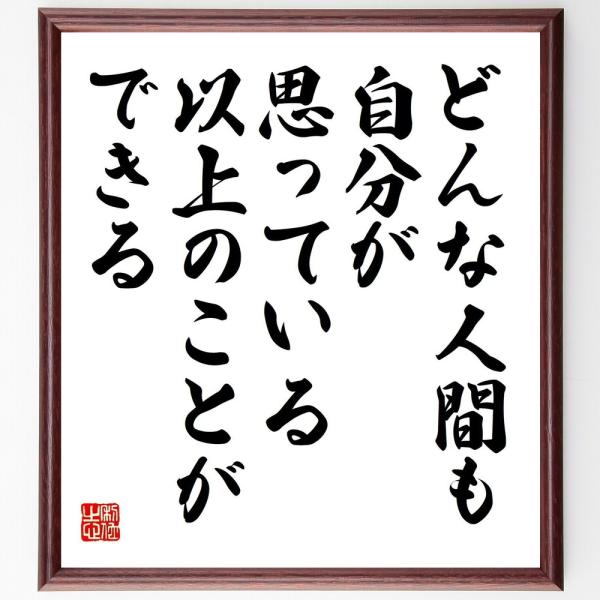 どんな人間も
自分が
思っている
以上のことが
できる